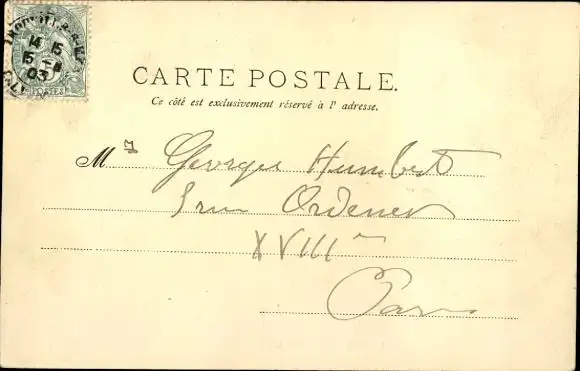 14 15
15 -8
03
POSTES
CARTE POSTALE.
Ce côté est exclusivement réservé à l' adresse.
Mr Georges Humbert
rue Ordener
XVIIIe
Paris